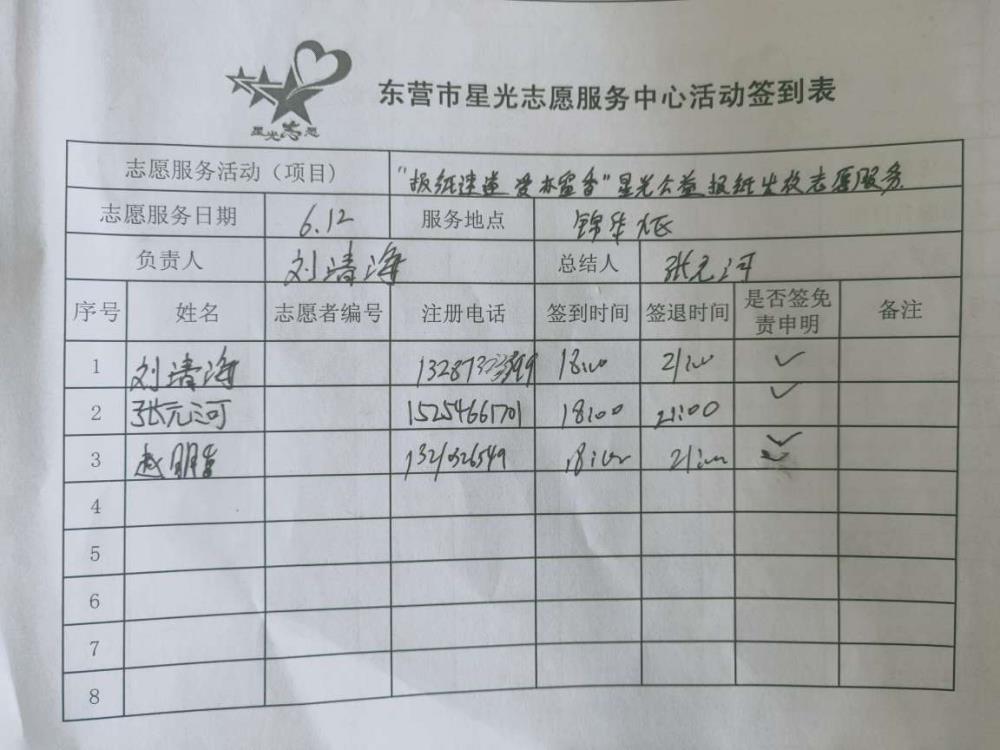 星光志愿
东营市星光志愿服务中心活动签到表
志愿服务活动（项目） "报纸速递 爱亦留香"星光公益报纸出投志愿服务
志愿服务日期 6.12 服务地点 锦华
负责人 刘清海 总结人 张元河
序号 姓名 志愿者编号 注册电话 签到时间 签退时间 是否签免责申明 备注
1 刘清海 18:00 21:00 ✓
2 张元河 15254661701 18:00 21:00 ✓
3 赵明 18:00 21:00 ✓
4
5
6
7
8